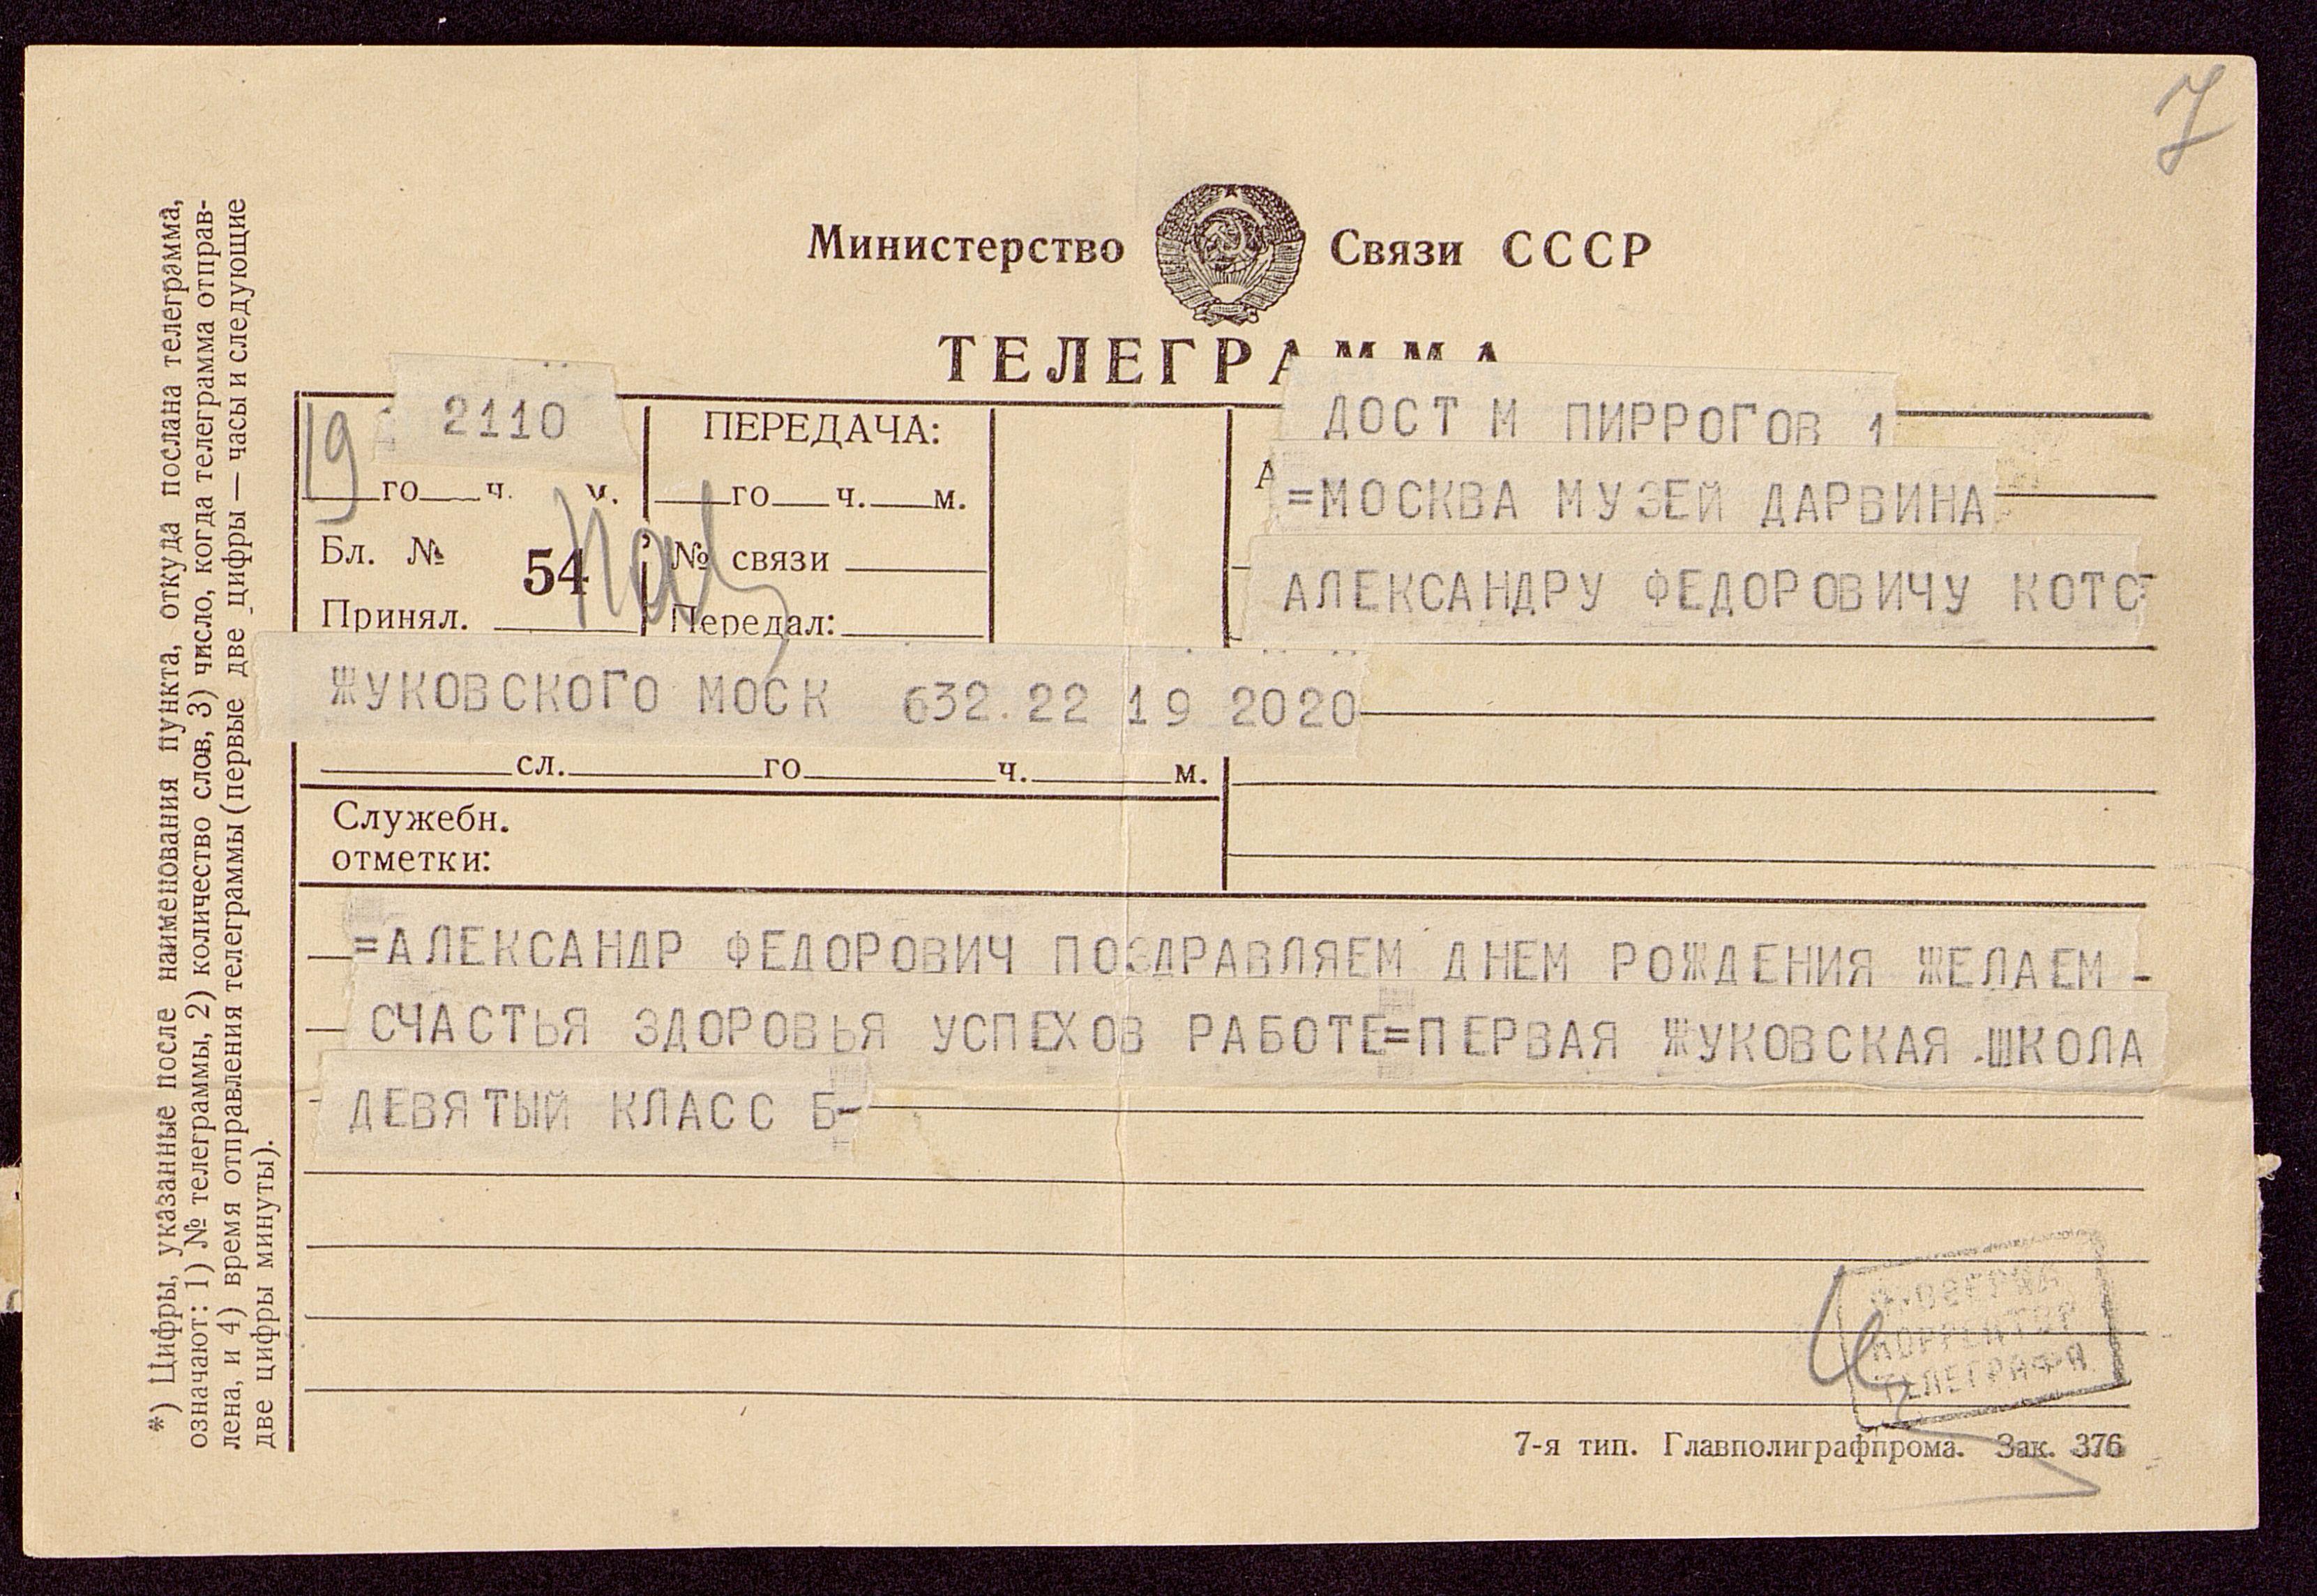 7
Министерство Связи СССР
ТЕЛЕГРАММА
19 2110
го ч. м.
Бл. № 54
Принял.
ПЕРЕДАЧА:
го ч. м.
№ связи
Передал:
ДОСТ М ПИРРОГОВ 1
=МОСКВА МУЗЕЙ ДАРВИНА
АЛЕКСАНДРУ ФЕДОРОВИЧУ КОТС=
ЖУКОВСКОГО МОСК 632.22 19 2020
сл. го ч. м.
Служебн.
отметки:
=АЛЕКСАНДР ФЕДОРОВИЧ ПОЗДРАВЛЯЕМ ДНЕМ РОЖДЕНИЯ ЖЕЛАЕМ -
СЧАСТЬЯ ЗДОРОВЬЯ УСПЕХОВ РАБОТЕ=ПЕРВАЯ ЖУКОВСКАЯ ШКОЛА
ДЕВЯТЫЙ КЛАСС Б-
КОРРЕКТОР
ТЕЛЕГРАФА
7-я тип. Главполиграфпрома. Зак. 376
*) Цифры, указанные после наименования пункта, откуда послана телеграмма,
означают: 1) № телеграммы, 2) количество слов, 3) число, когда телеграмма отправ-
лена, и 4) время отправления телеграммы (первые две цифры — часы и следующие
две цифры минуты).